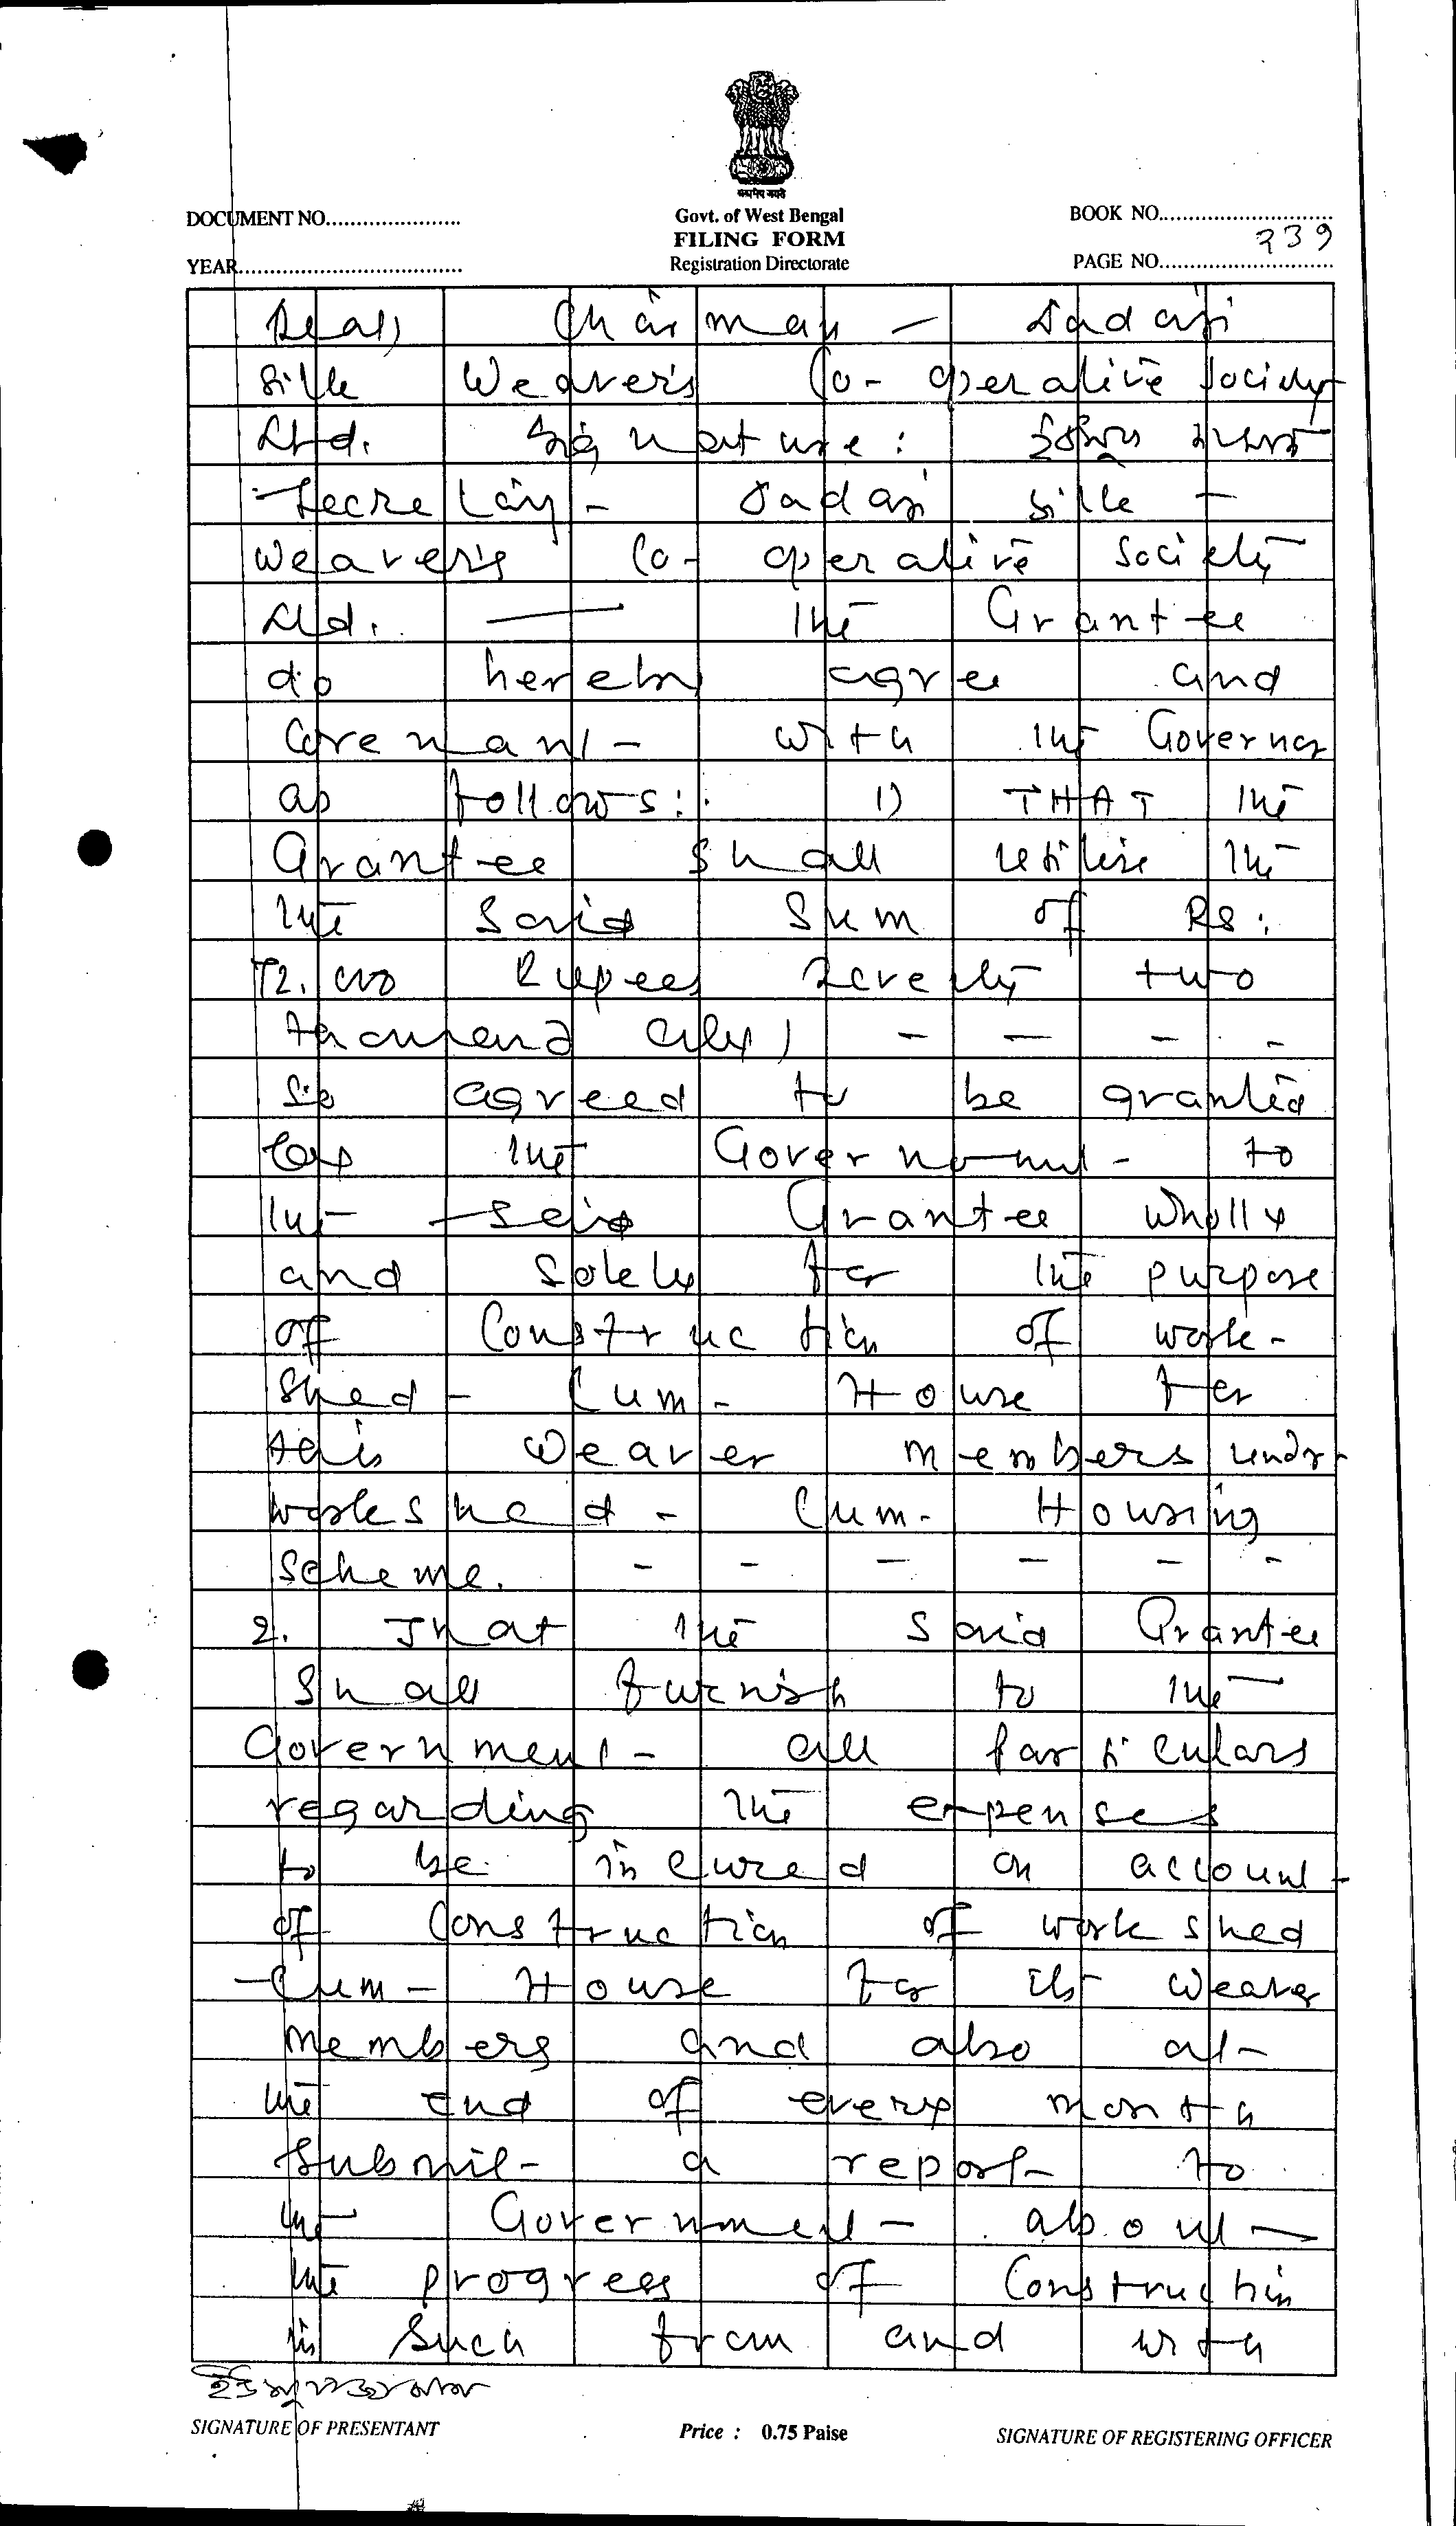 सत्यमेव जयते
Govt. of West Bengal
FILING FORM
Registration Directorate
DOCUMENT NO......................
YEAR.....................................
BOOK NO............................
PAGE NO............................ 239
Seal) Chairman - Dadazi
Silk Weaver's Co-operative Society
Ltd. Signature:
Secretary - Dadazi Silk -
Weaver's Co-operative Society
Ltd. — The Grantee
do hereby agree and
Covenant - with the Governor
as follows:. 1) THAT the
Grantee shall utilise the
the said Sum of Rs:
72. Rupees Seventy two
thousand only) - - - -
So agreed to be granted
by the Government - to
the said Grantee wholly
and solely for the purpose
of Construction of work-
shed - Cum - House for
this weaver members under
workshed - Cum - Housing
Scheme. - - - - - -
2. That the said Grantee
Shall furnish to the
Government - all particulars
regarding the expenses
to be incured on account -
of Construction of work shed
- Cum - House for its weaver
members and also at -
the end of every month
Submit - a report - to
the Government - about —
the progress of Construction
in such from and with
SIGNATURE OF PRESENTANT
Price : 0.75 Paise
SIGNATURE OF REGISTERING OFFICER